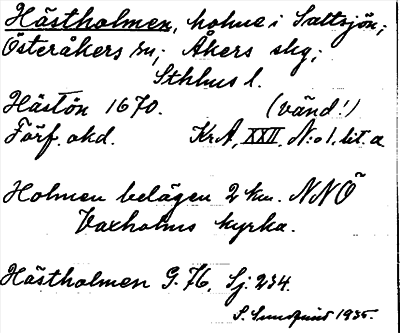 Hästholmen, holme i Saltsjön;
Österåkers sn; Åkers skg;
Sthlms l.
Hästön 1670. (vänd!)
Förf. okd. KrA, XXII, N:o 1, lit. a
Holmen belägen 2 km. NNÖ
Vaxholms kyrka.
Hästholmen G. 76, Sj: 234.
S. Sundquist 1935.